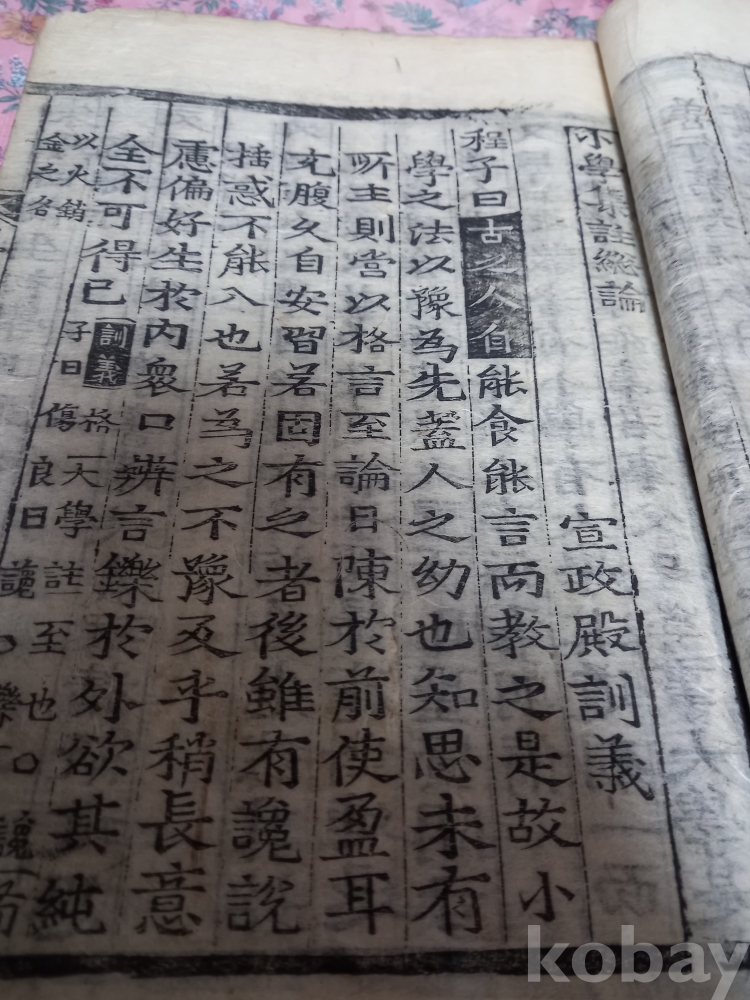 小學集註緫論
宣政殿訓義
程子曰古之人自能食能言而教之是故小
學之法以豫爲先盖人之幼也知思未有
所主則當以格言至論日陳於前使盈耳
充腹久自安習若固有之者後雖有讒說
搖惑不能入也若爲之不豫及乎稍長意
慮偏好生於內衆口辨言鑠於外欲其純
全不可得已訓義格大學註至也。讒
子曰傷良曰讒。鑠
以火銷
金之名